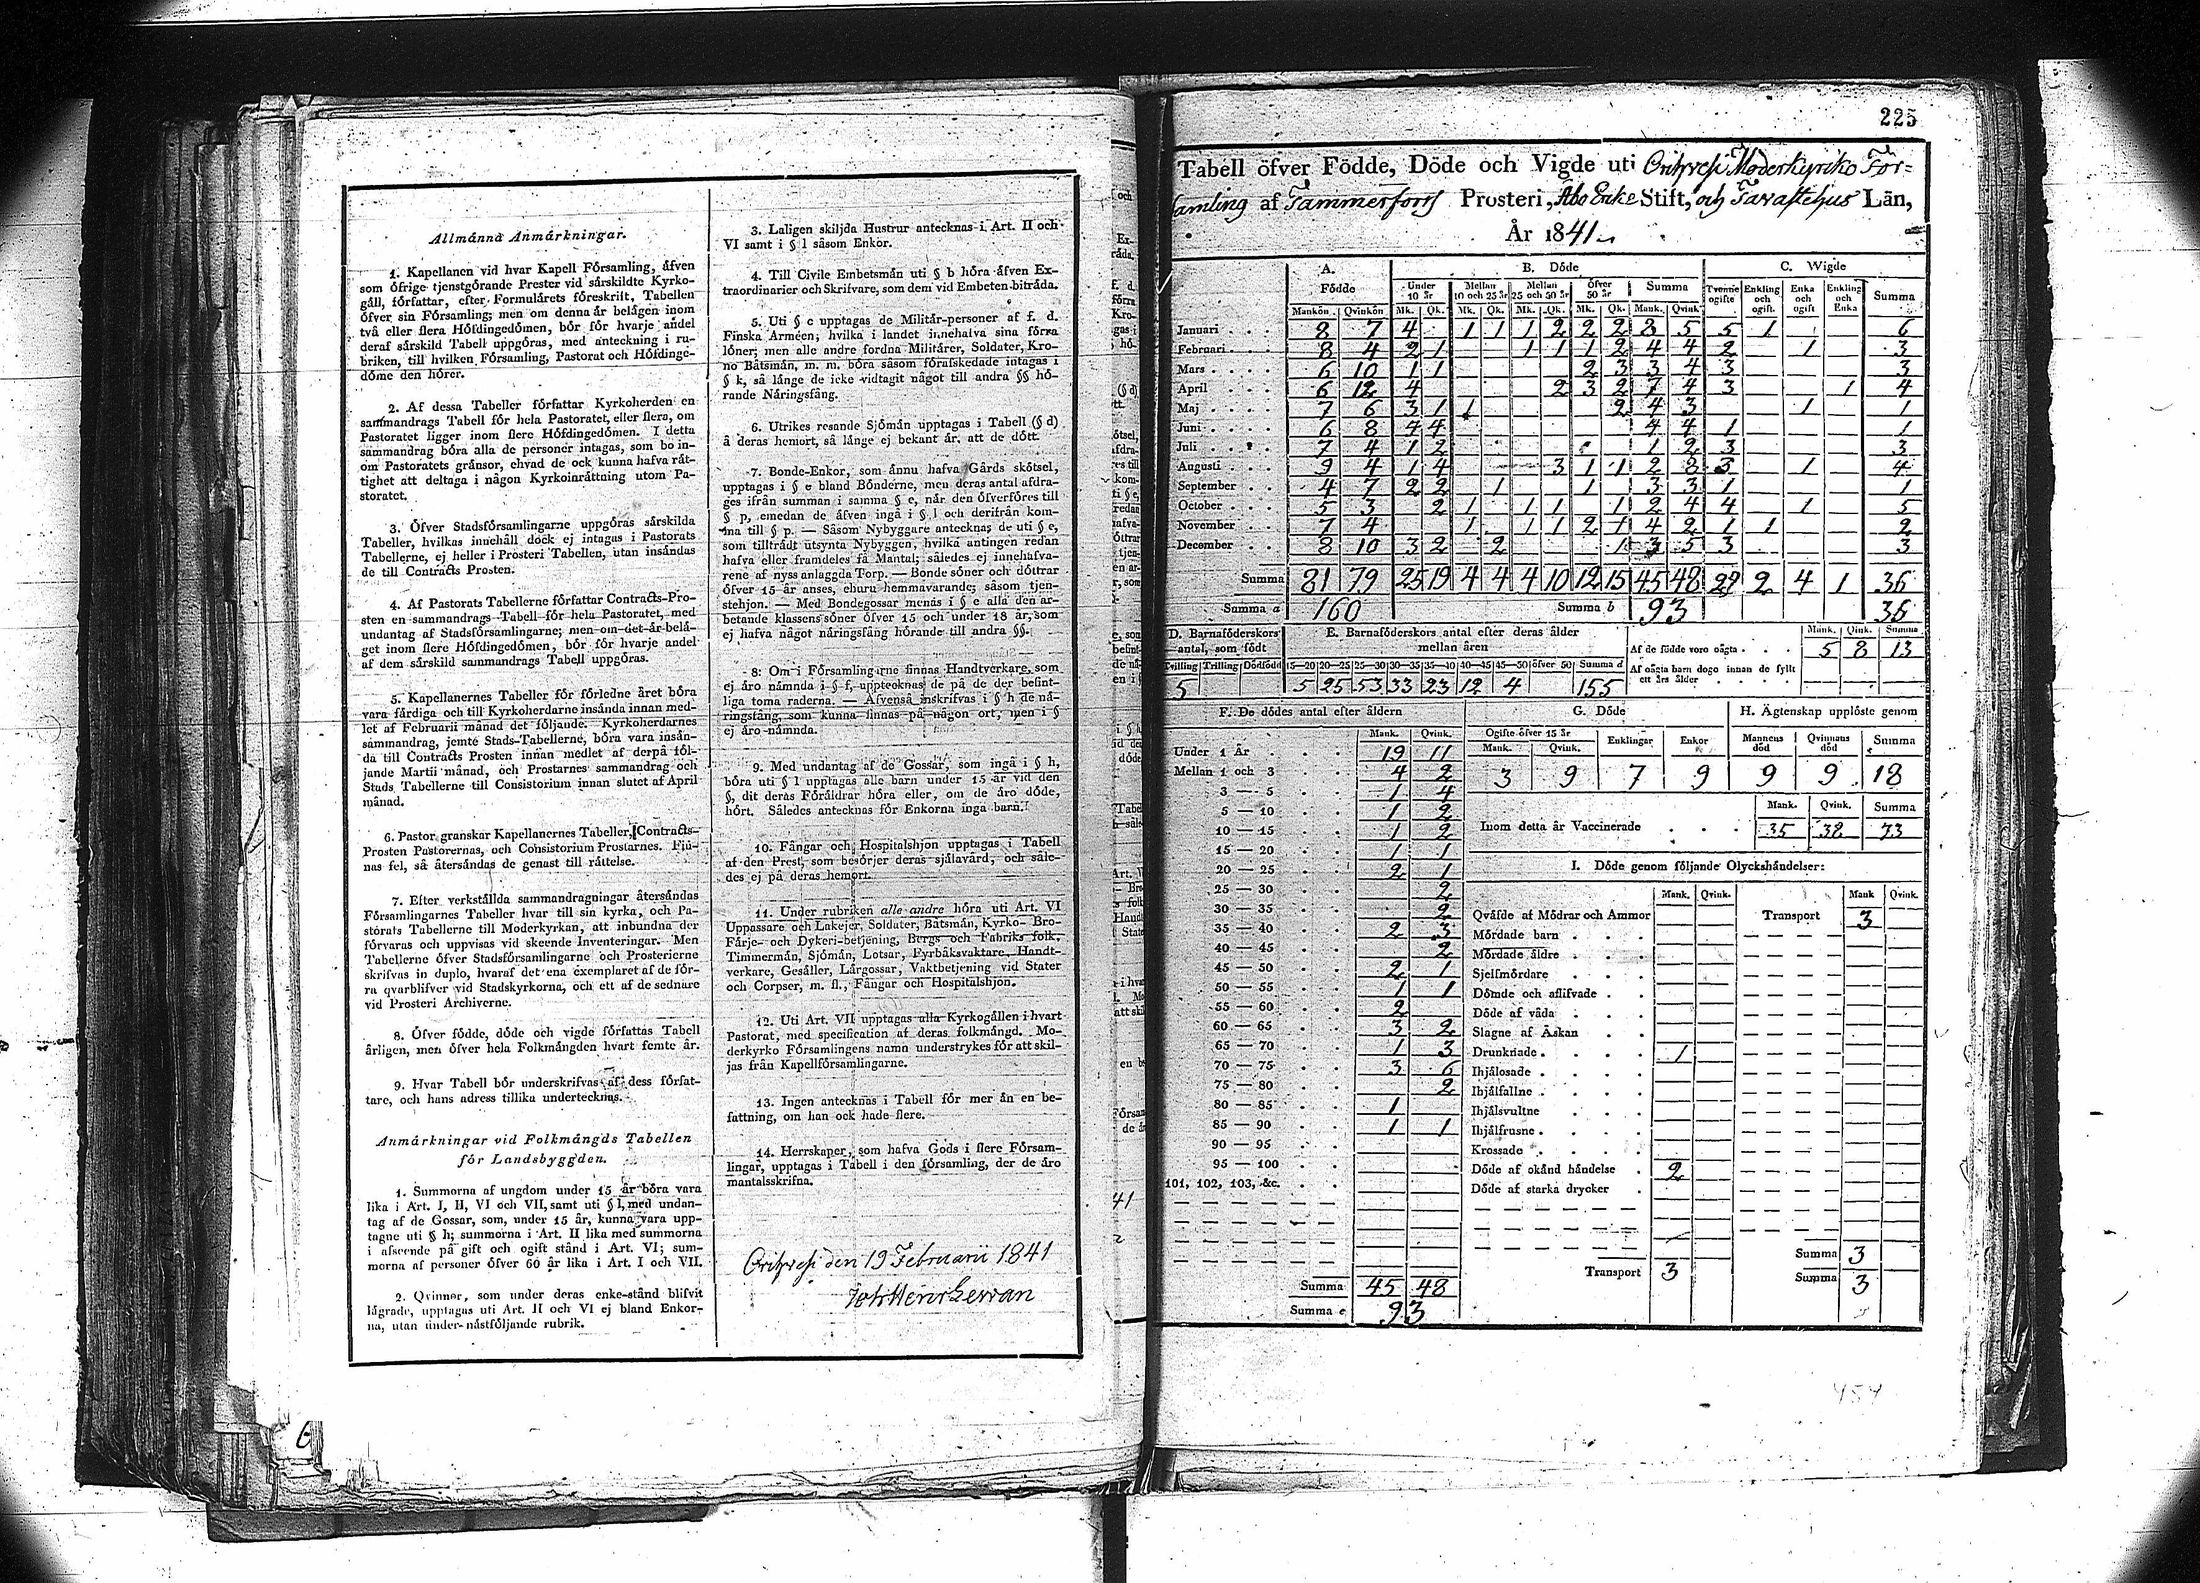 Allmánna Anmárkningar.
1. Kapellanen vid hvar Kapell Fórsamling, áfven
som ófrige tjenstgórande Prester vid sárskildte Kyrko-
gáll, fórfattar, efter Formulárets fóreskrift, Tabellen
ófver sin Fórsamling; men om denna ár belágen inom
tvá eller flera Hófdingedómen, bór fór hvarje andel
deraf sárskild Tabell uppgóras, med anteckning i ru-
briken, till hvilken Fórsamling, Pastorat och Hófdinge-
dóme den hórer.
2. Af dessa Tabeller fórfattar Kyrkoherden en
sammandrags Tabell fór hela Pastoratet, eller flera, om
Pastoratet ligger inom flere Hófdingedómen. I detta
sammandrag bóra alla de personer intagas, som bo in-
om Pastoratets gránsor, ehvad de ock kunna hafva rát-
tighet att deltaga i nágon Kyrkoinráttning utom Pa-
storatet.
3. Öfver Stadsfórsamlingarne uppgóras sárskilda
Tabeller, hvilkas innehåll dock ej intagas i Pastorats
Tabellerne, ej heller i Prosteri Tabellen, utan insándas
de till Contracts Prosten.
4. Af Pastorats Tabellerne fórfattar Contracts-Pro-
sten en sammandrags Tabell fór hela Pastoratet, med
undantag af Stadsfórsamlingarne; men om det ár belá-
get inom flere Hófdingedómen, bór fór hvarje andel
af dem sárskild sammandrags Tabell uppgóras.
5. Kapellanernes Tabeller fór fórledne året bóra
vara fárdiga och till Kyrkoherdarne insánda innan med-
let af Februarii månad det fóljande. Kyrkoherdarnes
sammandrag, jemte Stads-Tabellerne, bóra vara insán-
da till Contracts Prosten innan medlet af derpå fól-
jande Martii månad, och Prostarnes sammandrag och
Stads Tabellerne till Consistorium innan slutet af April
månad.
6. Pastor granskar Kapellanernes Tabeller, Contracts-
Prosten Pastorernas, och Consistorium Prostarnes. Fin-
nas fel, så átersándas de genast till ráttelse.
7. Efter verkstállda sammandragningar átersándas
Fórsamlingarnes Tabeller hvar till sin kyrka, och Pa-
storats Tabellerne till Moderkyrkan, att inbundna der
fórvaras och uppvisas vid skeende Inventeringar. Men
Tabellerne ófver Stadsfórsamlingarne och Prosterierne
skrifvas in duplo, hvaraf det ena exemplaret af de fór-
ra qvarblifver vid Stadskyrkorna, och ett af de sednare
vid Prosteri Archiverne.
8. Öfver fódde, dóde och vigde fórfattas Tabell
årligen, men ófver hela Folkmángden hvart femte år.
9. Hvar Tabell bór underskrifvas af dess fórfat-
tare, och hans adress tillika undertecknas.
Anmárkningar vid Folkmángds Tabellen
fór Landsbyggden.
1. Summorna af ungdom under 15 år bóra vara
lika i Art. I, II, VI och VII, samt uti § l, med undan-
tag af de Gossar, som, under 15 år, kunna vara upp-
tagne uti § h; summorna i Art. II lika med summorna
i afseende på gift och ogift stånd i Art. VI; sum-
morna af personer ófver 60 år lika i Art. I och VII.
2. Qvinnor, som under deras enke-stånd blifvit
lágrade, upptagas uti Art. II och VI ej bland Enkor-
na, utan under nástfóljande rubrik.
3. Laligen skiljda Hustrur antecknas i Art. II och
VI samt i § l såsom Enkor.
4. Till Civile Embetsmán uti § b hóra áfven Ex-
traordinarier och Skrifvare, som dem vid Embeten bitráda.
5. Uti § c upptagas de Militár-personer af f. d.
Finska Arméen, hvilka i landet innehafva sina fórra
lóner; men alle andre fordna Militárer, Soldater, Kro-
no Båtsmán, m. m. bóra såsom fórafskedade intagas i
§ k, så länge de icke vidtagit något till andra §§ hó-
rande Náringsfång.
6. Utrikes resande Sjómán upptagas i Tabell (§ d)
å deras hemort, så lánge ej bekant ár, att de dótt.
7. Bonde-Enkor, som ánnu hafva Gårds skótsel,
upptagas i § e bland Bónderne, men deras antal afdra-
ges ifrån summan i samma § e, når den ófverfóres till
§ p, emedan de áfven ingå i § l och derifrån kom-
ma till § p. — Såsom Nybyggare antecknas de uti § e,
som tilltrádt utsynta Nybyggen, hvilka antingen redan
hafva eller framdeles få Mantal; således ej innehafva-
rene af nyss anlaggda Torp. — Bonde sóner och dóttrar
ófver 15 år anses, ehuru hemmavarande, såsom tjen-
stehjon. — Med Bondegossar menas i § e alla den ar-
betande klassens sóner ófver 15 och under 18 år, som
ej hafva något náringsfång hórande till andra §§.
8. Om i Fórsamlingarne finnas Handtverkare, som
ej áro námnda i § f, uppteoknas de på de der befint-
liga toma raderna. — Afvenså inskrifvas i § h de ná-
ringsfång, som kunna finnas på någon ort, men i §
ej áro námnda.
9. Med undantag af de Gossar, som ingå i § h,
bóra uti § l upptagas alle barn under 15 år vid den
§, dit deras Fóráldrar hóra eller, om de áro dóde,
hórt. Således antecknas fór Enkorna inga barn.
10. Fångar och Hospitalshjon upptagas i Tabell
af den Prest, som besórjer deras sjálavård, och såle-
des ej på deras hemort.
11. Under rubriken alle andre hóra uti Art. VI
Uppassare och Lakejer, Soldater, Båtsmán, Kyrko- Bro-
Fárje- och Dykeri-betjening, Bergs och Fabriks folk,
Timmermán, Sjómán, Lotsar, Fyrbåksvaktare, Handt-
verkare, Gesáller, Lárgossar, Vaktbetjening vid Stater
och Corpser, m. fl., Fångar och Hospitalshjon.
12. Uti Art. VII upptagas alla Kyrkogállen i hvart
Pastorat, med specification af deras folkmángd. Mo-
derkyrko Fórsamlingens namn understrykes fór att skil-
jas från Kapellfórsamlingarne.
13. Ingen antecknas i Tabell fór mer án en be-
fattning, om han ock hade flere.
14. Herrskaper, som hafva Gods i flere Fórsam-
lingar, upptagas i Tabell i den fórsamling, der de áro
mantalsskrifna.
Orihvesi den 19 Februarii 1841
225
Tabell öfver Födde, Döde och Vigde uti Orihvesi Moderkyrko För=
samling af Tammerfors Prosteri, Åbo Erke Stift, och Tavastehus Län,
År 1841.
A. Födde B. Döde C. Wigde
Under 10 år Mellan 10 och 25 år Mellan 25 och 50 år Öfver 50 år Summa Tvenne ogifte Enkling och ogift. Enka och ogift Enkling och Enka Summa
Mankön Qvinkön Mk. Qk. Mk. Qk. Mk. Qk. Mk. Qk. Mank. Qvink
Januari 8 7 4 1 1 1 2 2 2 8 5 5 1 6
Februari 8 4 2 1 1 1 1 2 4 4 2 1 3
Mars 6 10 1 1 2 3 3 4 3 3
April 6 12 4 2 3 2 7 4 3 1 4
Maj 7 6 3 1 1 2 4 3 1 1
Juni 6 8 4 4 4 4 1 1
Juli 7 4 1 2 1 2 3 3
Augusti 9 4 1 4 3 1 1 2 8 3 1 4
September 4 7 2 2 1 1 3 3 1 1
October 5 3 2 1 1 1 1 2 4 4 1 5
November 7 4 1 1 1 2 1 4 2 1 1 2
December 8 10 3 2 2 1 3 5 3 3
Summa 81 79 25 19 4 4 4 10 12 15 45 48 29 2 4 1 36
Summa a 160 Summa b 93 36
D. Barnaföderskors antal, som födt
Tvilling Trilling Dödfödd
5
E. Barnaföderskors antal efter deras ålder mellan åren
15—20 20—25 25—30 30—35 35—40 40—45 45—50 öfver 50 Summa d
5 25 53 33 23 12 4 155
Mank. Qvink. Summa
Af de födde voro oägta 5 8 13
Af oägta barn dogo innan de fyllt
ett års ålder
F. De dödes antal efter åldern
Mank. Qvink.
Under 1 År 19 11
Mellan 1 och 3 4 2
3 — 5 1 4
5 — 10 1 2
10 — 15 1 2
15 — 20 1 1
20 — 25 2 1
25 — 30 2
30 — 35 2
35 — 40 2 3
40 — 45 2
45 — 50 2 1
50 — 55 1 1
55 — 60 2
60 — 65 3 2
65 — 70 1 3
70 — 75 3 6
75 — 80 2
80 — 85 1
85 — 90 1 1
90 — 95
95 — 100
101, 102, 103, &c.
Summa 45 48
Summa e 93
G. Döde
Ogifte öfver 15 år Enklingar Enkor
Mank. Qvink.
3 9 7 9
H. Ägtenskap upplöste genom
Mannens död Qvinnans död Summa
9 9 18
Mank. Qvink. Summa
Inom detta år Vaccinerade 35 38 73
I. Döde genom följande Olyckshändelser:
Mank. Qvink. Mank Qvink.
Qväfde af Mödrar och Ammor Transport 3
Mördade barn
Mördade äldre
Sjelfmördare
Dömde och aflifvade
Döde af våda
Slagne af Åskan
Drunknade 1
Ihjälosade
Ihjälfallne
Ihjälsvultne
Ihjälfrusne
Krossade
Döde af okänd händelse 2
Döde af starka drycker
Summa 3
Transport 3 Summa 3
454